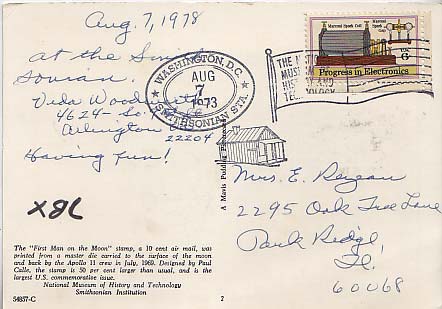 Aug. 7, 1978
at the Smith-
sonian.
Vida Wood
4624- So.
Arlington
22204
Having fun!
X8L
WASHINGTON, D.C.
AUG
7
1973
SMITHSONIAN STA.
THE N
MUS
HIS AND
TEC OLOGY
Marconi Spark Coil
Marconi Spark Gap
U.S. 6¢
Progress in Electronics
Mrs. E. Rezeau
2295 Oak Tree Lane
Park Ridge,
Il.
60068
A Mavis Pudding
The "First Man on the Moon" stamp, a 10 cent air mail, was
printed from a master die carried to the surface of the moon
and back by the Apollo 11 crew in July, 1969. Designed by Paul
Calle, the stamp is 50 per cent larger than usual, and is the
largest U.S. commemorative issue.
National Museum of History and Technology
Smithsonian Institution
54837-C
7